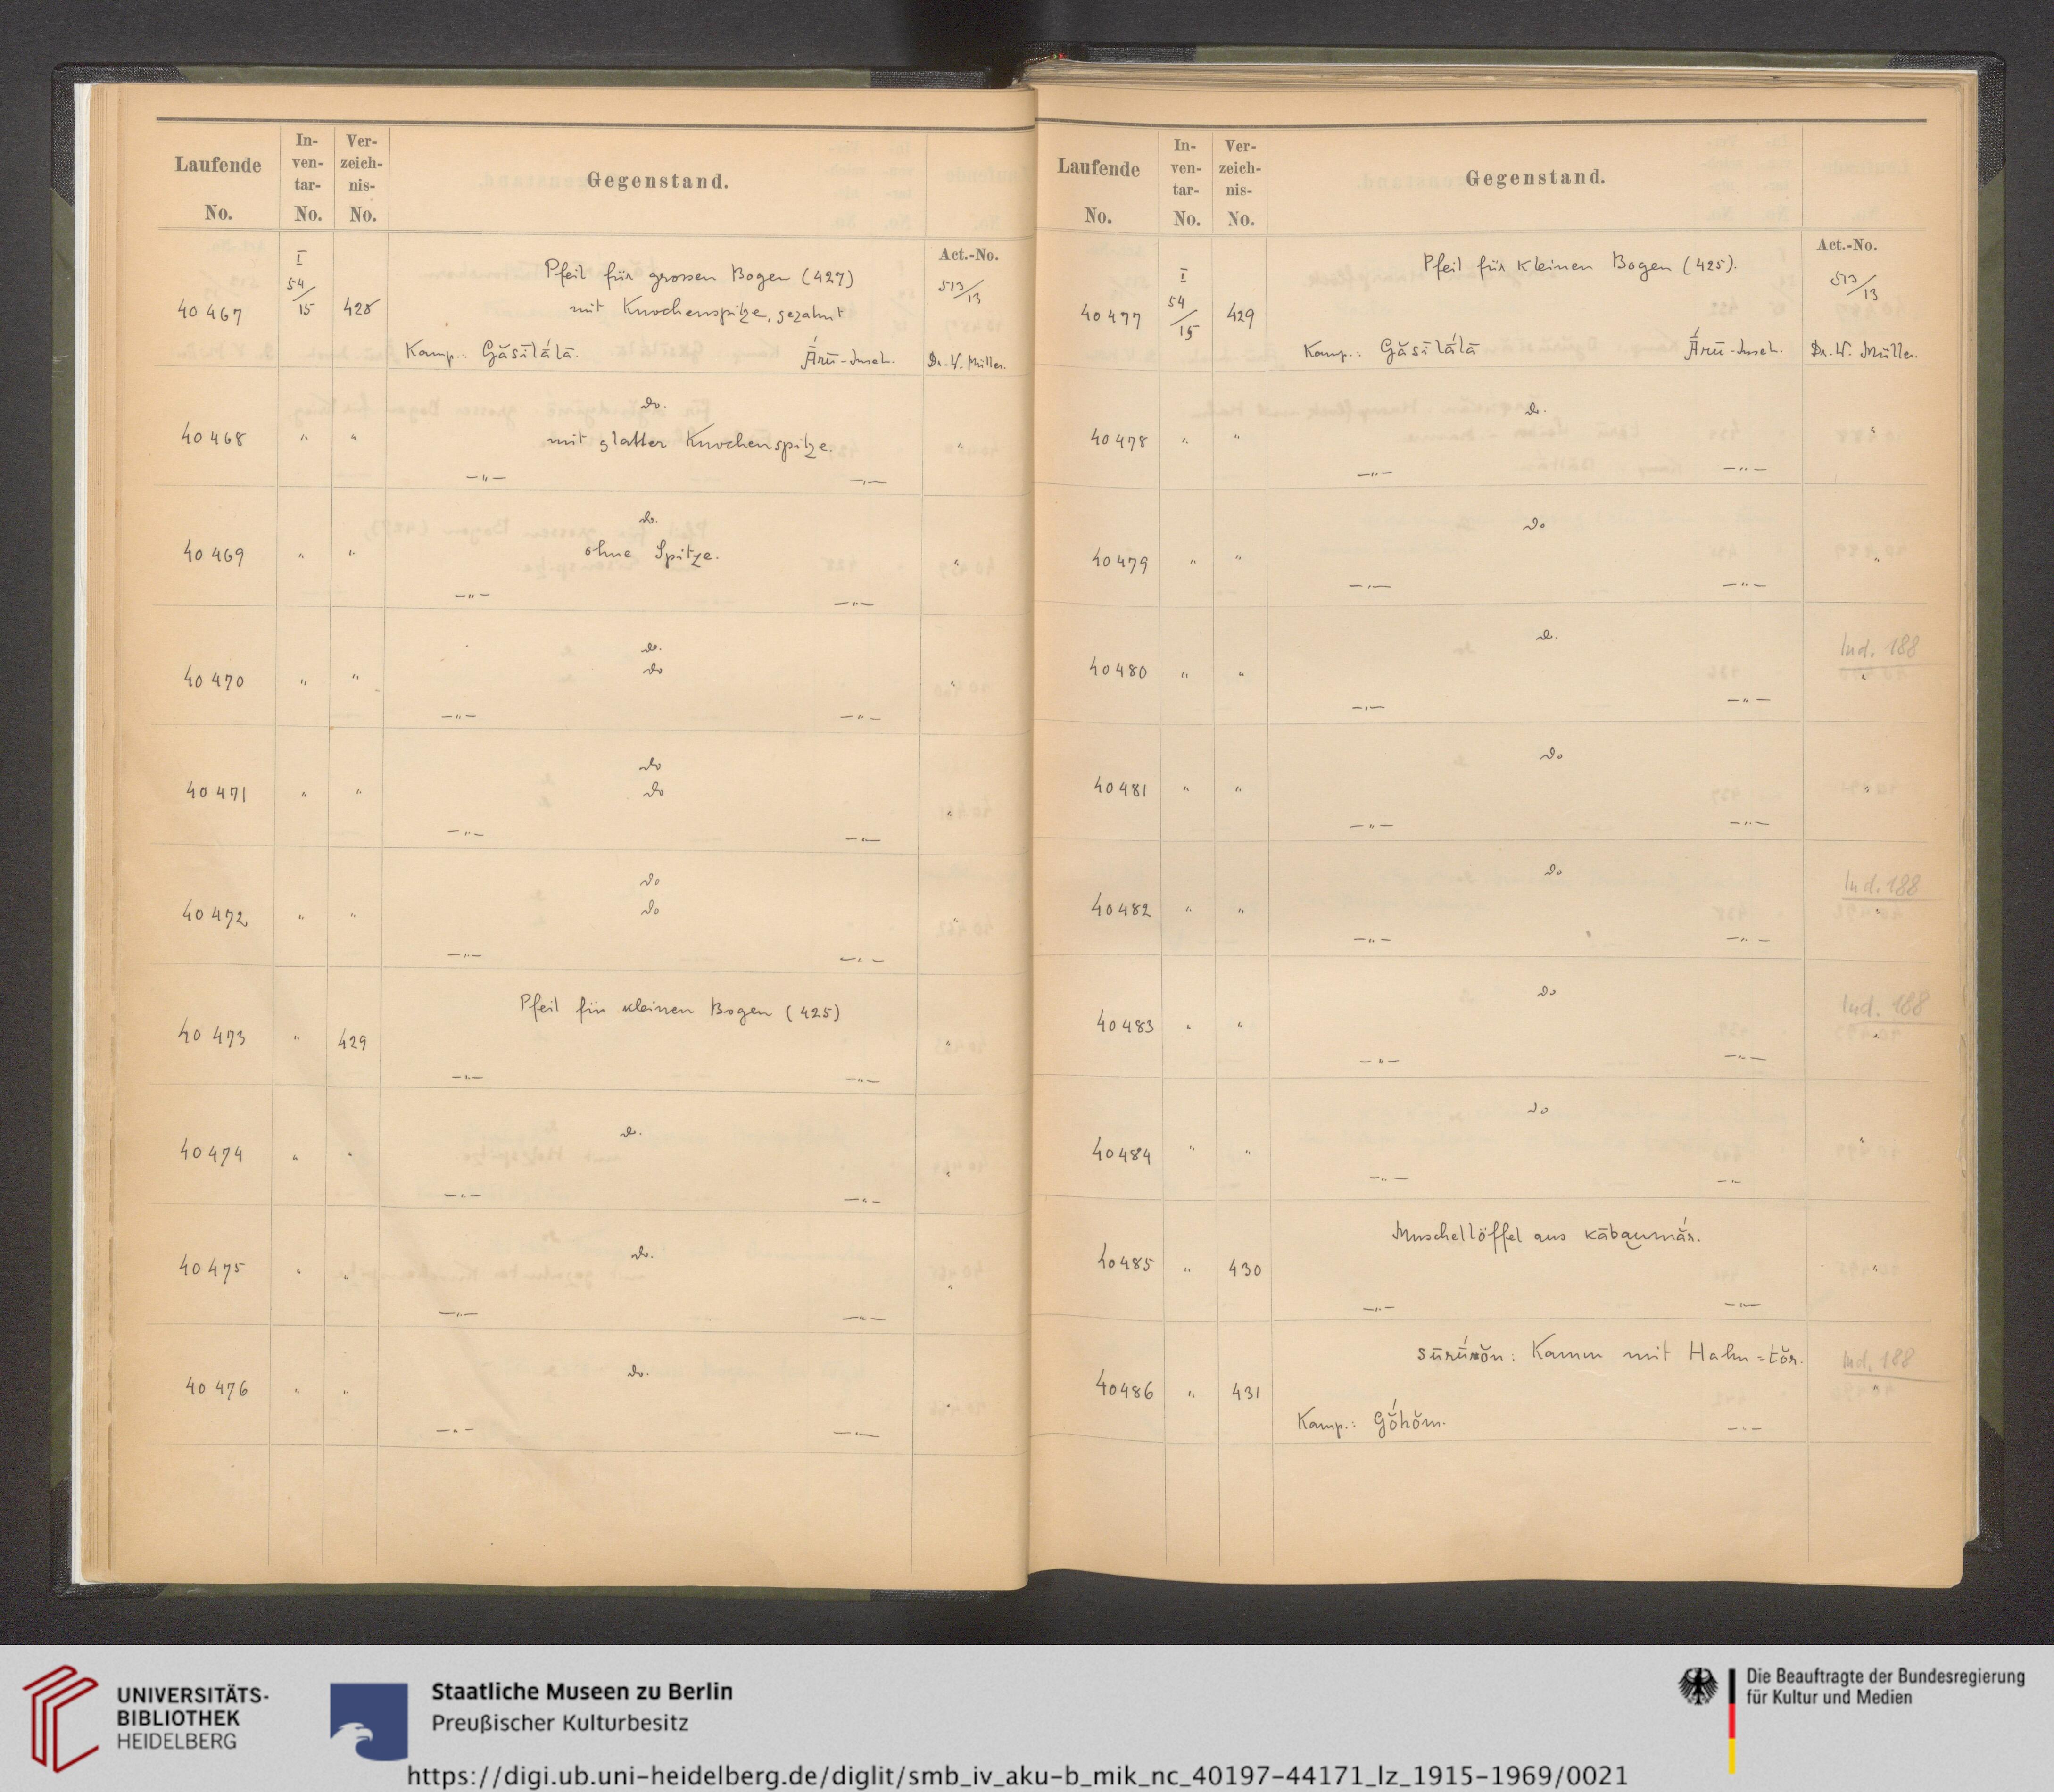 Laufende No.
In-ven-tar-No.
Ver-zeich-nis-No.
Gegenstand.
Act.-No.
40 467 I 54/15 428 Pfeil für grossen Bogen (427) 513/13
mit Knochenspitze, gezahnt
Kamp.: Găsīlā́lā. Ā́rū-Inseln. Dr. W. Müller.
do.
40 468 " " mit glatter Knochenspitze. "
—"— —"—
do.
40 469 " " ohne Spitze. "
—"— —"—
do.
40 470 " " do "
—"— —"—
do
40 471 " " do "
—"— —"—
do
40 472 " " do "
—"— —"—
Pfeil für kleinen Bogen (425)
40 473 " 429 "
—"— —"—
40 474 " " do. "
—"— —"—
40 475 " " do. "
—"— —"—
40 476 " " do. "
—"— —"—
Laufende No.
In-ven-tar-No.
Ver-zeich-nis-No.
Gegenstand.
Act.-No.
Pfeil für kleinen Bogen (425). 513/13
40 477 I 54/15 429
Kamp.: Găsīlā́lā Ā́rū-Inseln. Dr. W. Müller.
40 478 " " do. "
—"— —"—
40 479 " " do "
—"— —"—
do. Ind. 188
40 480 " " "
—"— —"—
40 481 " " do "
—"— —"—
do Ind. 188
40 482 " " "
—"— —"—
do Ind. 188
40 483 " " "
—"— —"—
40 484 " " do "
—"— —"—
Muschellöffel aus
40 485 " 430 "
—"— —"—
Kamm mit Hahn=tŏr. Ind. 188
40486 " 431 "
Kamp.: Gŏ́hŏm. —"—
UNIVERSITÄTS-
BIBLIOTHEK
HEIDELBERG
Staatliche Museen zu Berlin
Preußischer Kulturbesitz
Die Beauftragte der Bundesregierung
für Kultur und Medien
https://digi.ub.uni-heidelberg.de/diglit/smb_iv_aku-b_mik_nc_40197-44171_lz_1915-1969/0021